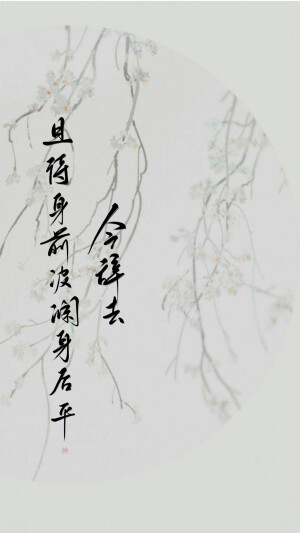 今辞去
且待身前波澜身后平